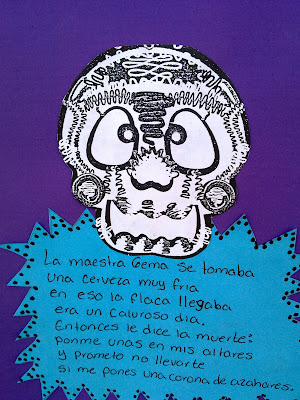 La maestra Gema se tomaba
una cerveza muy fria
en eso la flaca llegaba
era un caluroso dia.
Entonces le dice la muerte:
ponme unas en mis altares
y prometo no llevarte
si me pones una corona de azahares.